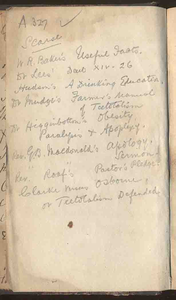 A 327
Scarce
W. R. Baker's Useful Facts.
Dr Lees' Deut XIV-26
Hudson's A Drinking Education
Dr Mudge's Farmer's Manual
of Teetotalism
Dr Higginbottom's Obesity,
Paralysis & Apoplexy.
Rev. G. B. Macdonald's Apology,
Sermon
Rev. Roaf's Pastor's Pledge.
Clarke Osborne,
or Teetotalism Defended